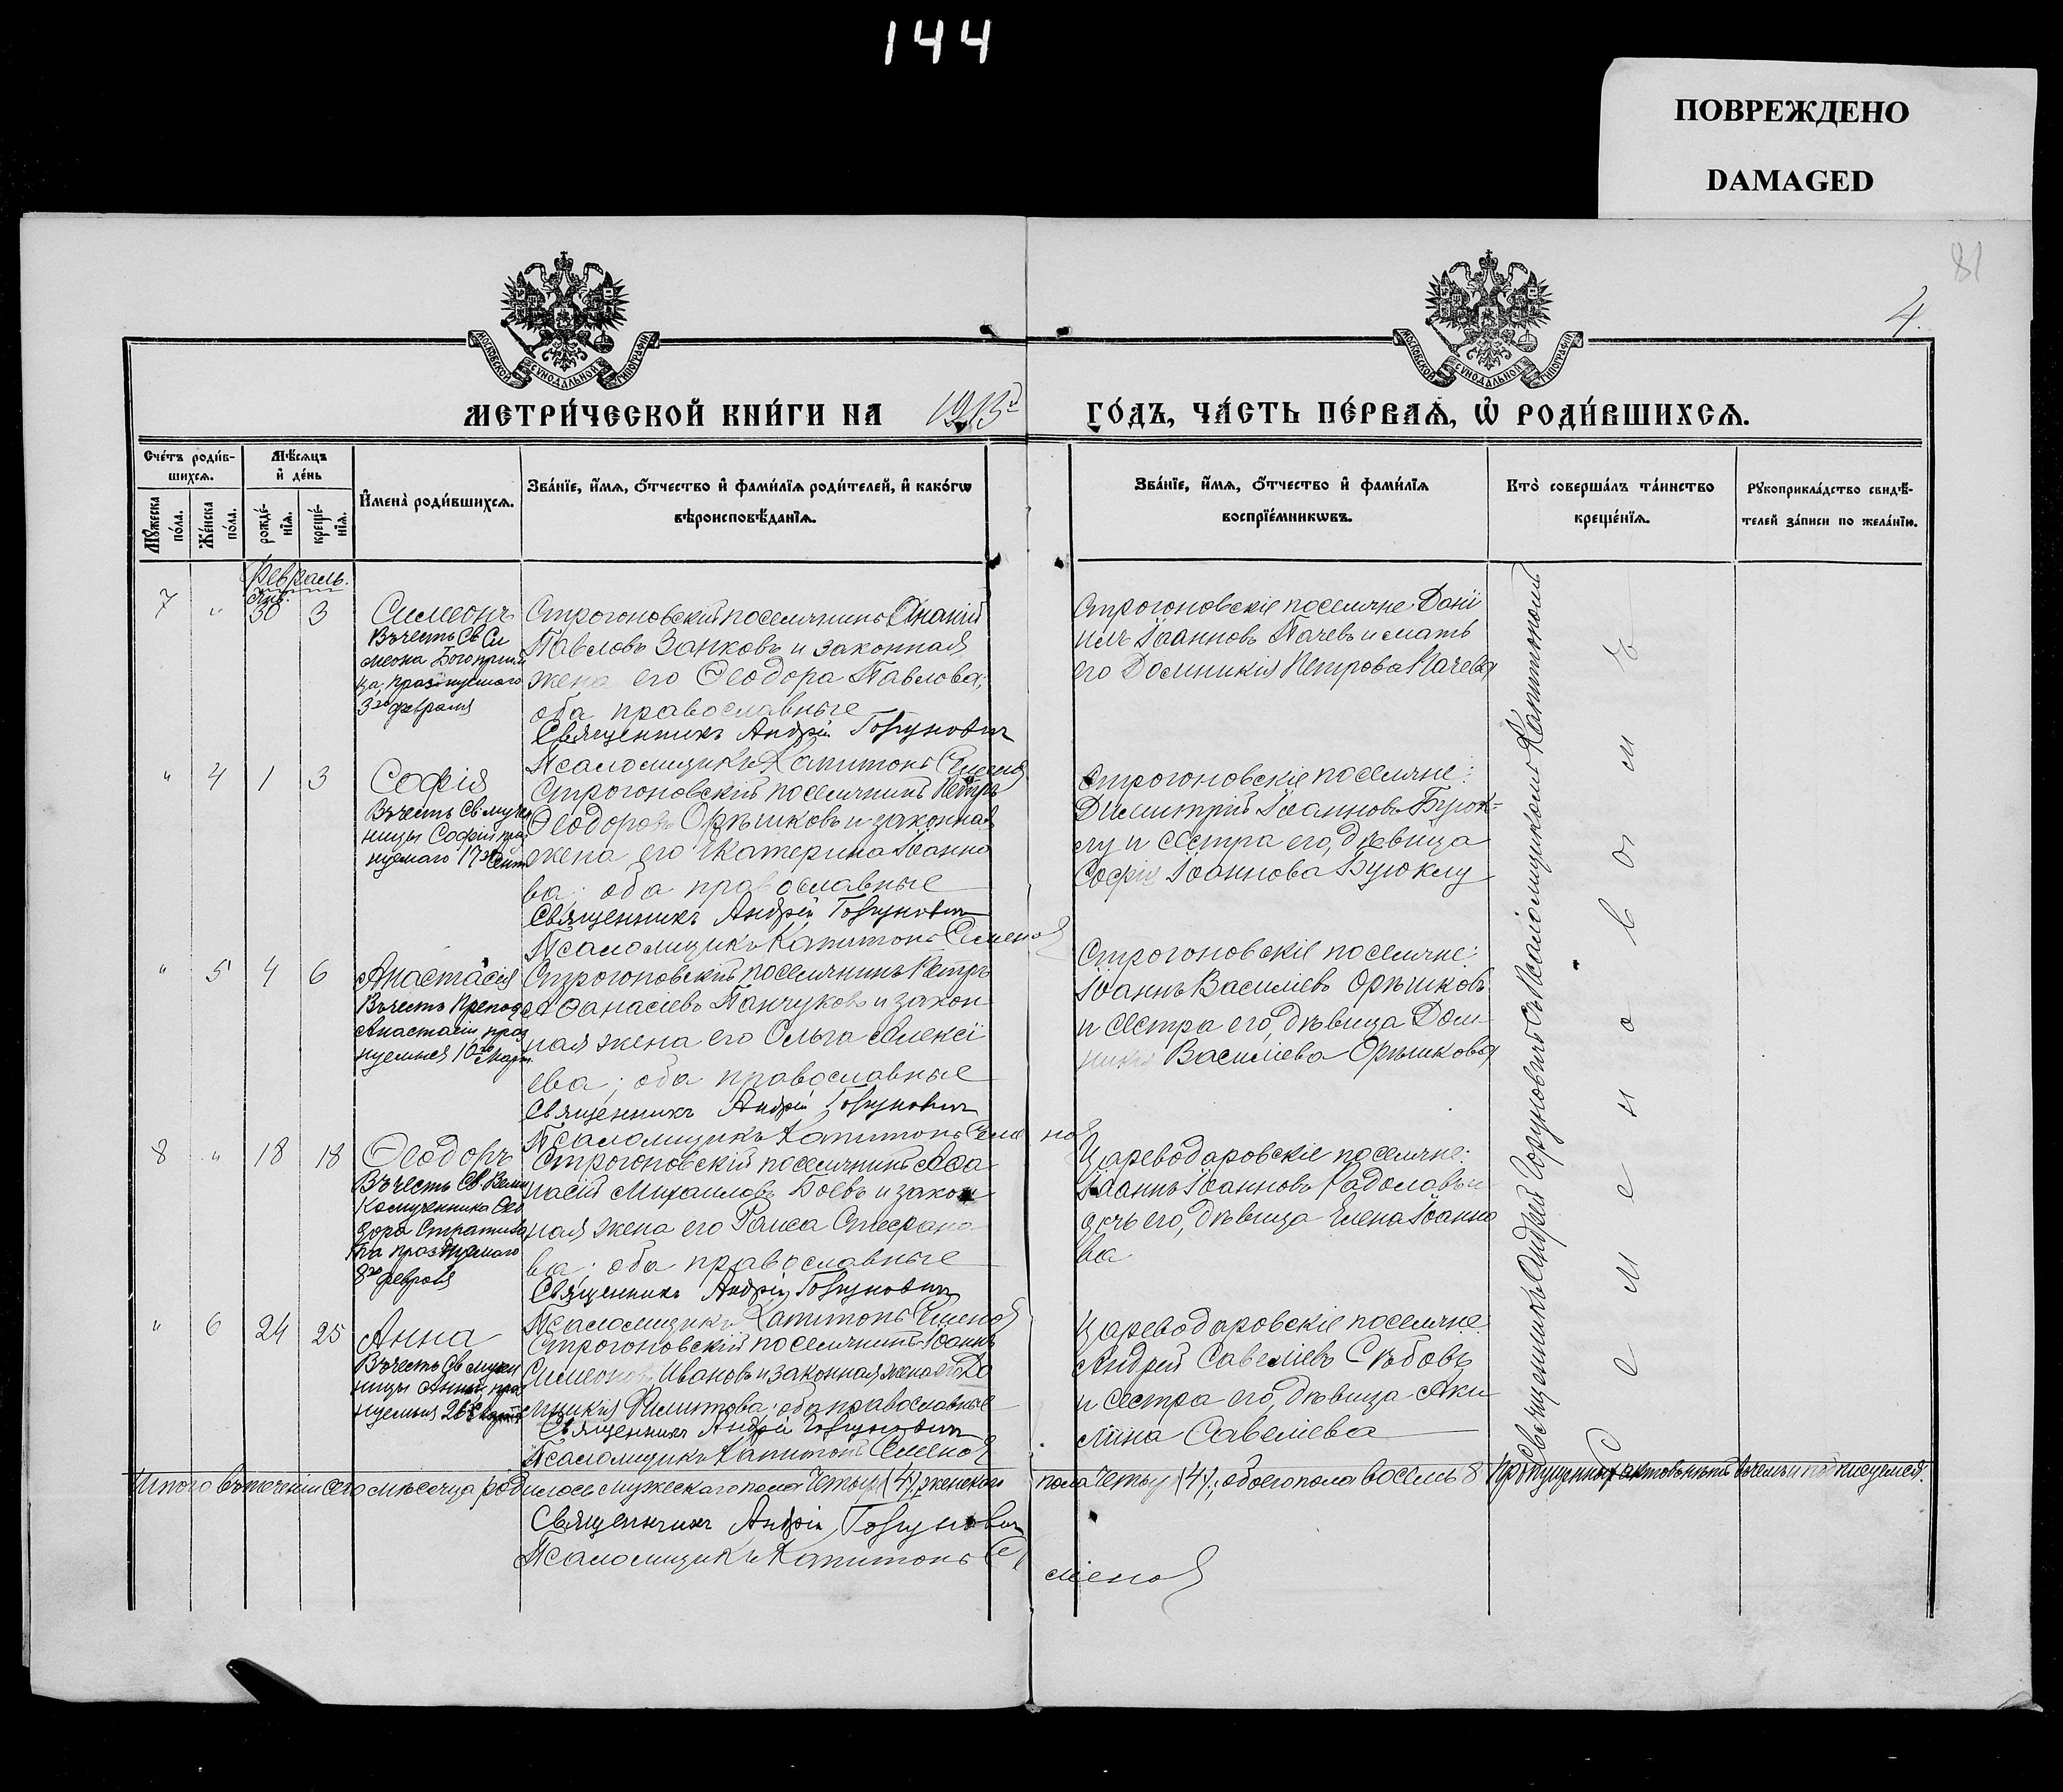 144
ПОВРЕЖДЕНО
DAMAGED
81
4.
МОСКОВСКОЙ СѴНОДАЛЬНОЙ ТИПОГРАФІИ
МОСКОВСКОЙ СѴНОДАЛЬНОЙ ТИПОГРАФІИ
МЕТРИ́ЧЕСКОЙ КНИ́ГИ НА 1913й ГО́ДЪ, ЧА́СТЬ ПЕ́РВАѦ, Ѡ҆ РОДИ́ВШИХСѦ.
Сче́тъ роди́в-
шихсѧ.
Мѣ́сѧцъ
и҆ де́нь
Мꙋ́жеска
по́ла.
Же́нска
по́ла.
рожде́-
нїѧ.
креще́-
нїѧ.
И҆мена̀ роди́вшихсѧ.
Зва́нїе, и҆́мѧ, ѻ҆́тчество и҆ фами́лїѧ роди́телей, и҆ како́гѡ
вѣроисповѣ́данїѧ.
Зва́нїе, и҆́мѧ, ѻ҆́тчество и҆ фами́лїѧ
воспрїе́мникѡвъ.
Кто̀ соверша́лъ та́инство
креще́нїѧ.
Рꙋкоприкла́дство свидѣ́-
телей за́писи по жела́нїю.
Февраль.
7 " Янв. 30 3 Симеонъ
Въ честь Св Си
меона Богоприим
ца, празднуемаго
3го февраля
Строгоновскій поселянинъ Ананій
Павловъ Занковъ и законная
жена его Ѳеодора Павлова;
оба православные
Священникъ Андрій Горуновичъ
Псаломщикъ Капитонъ Семенов
Строгоновскіе поселяне: Дані
илъ Іоанновъ Пачевъ и мать
его Домникія Петрова Пачева
" 4 1 3 Софія
Въ честь Св муче
ницы Софіи праз
нуемаго 17го Сент
Строгоновскій поселянинъ Петръ
Ѳеодоровъ Орѣшковъ и законная
жена его Екатерина Іоанно
ва; оба православные
Священникъ Андрій Горуновичъ
Псаломщикъ Капитонъ Семенов
Строгоновскіе поселяне:
Димитрій Іоанновъ Буюк=
лу и сестра его, дѣвица
Софія Іоаннова Буюклу
" 5 4 6 Анастасія
Въ честь Препод
Анастасіи праз
нуемыя 10го Март
Строгоновскій поселянинъ Петръ
Аѳанасіевъ Панчуковъ и закон
ная жена его Ольга Алексі
ева; оба православные
Священникъ Андрій Горуновичъ
Псаломщикъ Капитонъ Семенов
Строгоновскіе поселяне:
Іоаннъ Василіевъ Орѣшковъ
и сестра его, дѣвица Дом-
никія Василіева Орѣшкова
8 " 18 18 Ѳеодоръ
Въ честь Св. Вели
комученника Ѳео
дора Стратила
та празднуемаго
8го февраля
Строгоновскій поселянинъ Аѳа
насій Михаиловъ Боевъ и закон
ная жена его Раиса Стефано
ва; оба православные
Священникъ Андрій Горуновичъ
Псаломщикъ Капитонъ Семенов
Цареводаровскіе поселяне:
Іоаннъ Іоанновъ Радославъ и
дочь его, дѣвица Елена Іоанно
ва
" 6 24 25 Анна
Въ честь Св мучен
ницы Анны, праз
нуемыя 26 Марта
Строгоновскій поселянинъ Іоаннъ
Симеоновъ Ивановъ и законная жена его До
мникія Филиппова; оба православные
Священникъ Андрій Горуновичъ
Псаломщикъ Капитонъ Семенов
Цареводаровскіе поселяне:
Андрей Савеліевъ Сѣбовъ
и сестра его, дѣвица Аки
лина Савеліева
Священникъ Андрей Горуновичъ съ Псаломщикомъ Капитономъ
Семеновымъ
Итого въ теченіи сего мѣсяца родилось мужескаго пола четыре (4); женскаго пола четыр (4); обоего пола восемь 8 Пропущенных актовъ нѣтъ въ чемъ и подписуемся.
Священникъ Андрій Горуновичъ
Псаломщикъ Капитонъ Се
менов